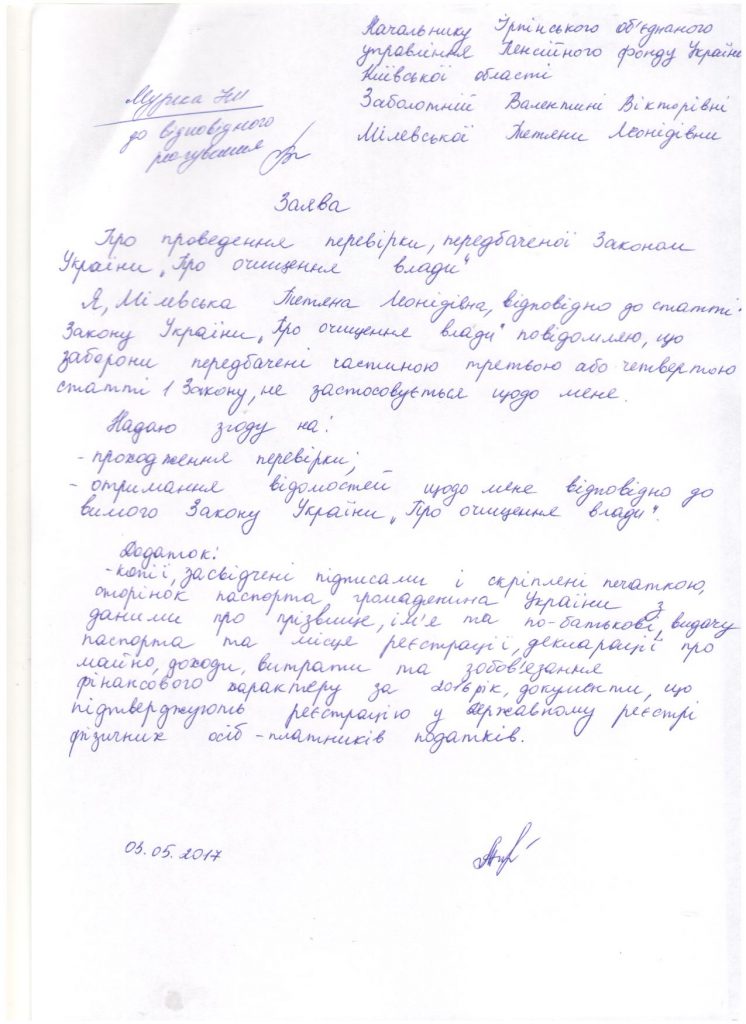 Начальнику Ірпінського об'єднаного
управління Пенсійного фонду Україні
Київської області
Заболотній Валентині Вікторівні
Мілевської Тетяни Леонідівни
до відповідного
реагування
Заява
Про проведення перевірки, передбаченої Законом
України „Про очищення влади"
Я, Мілевська Тетяна Леонідівна, відповідно до статті
Закону України „Про очищення влади" повідомляю, що
заборони передбачені частиною третьою або четвертою
статті 1 Закону, не застосовується щодо мене.
Надаю згоду на:
- проходження перевірки;
- отримання відомостей щодо мене відповідно до
вимого Закону України „Про очищення влади".
Додаток:
- копії, засвідчені підписами і скріплені печаткою,
сторінок паспорта громадянина України з
даними про прізвище, ім'я та по-батькові, видачу
паспорта та місце реєстрації, декларації про
майно, доходи, витрати та зобов'язання
фінансового характеру за 2016 рік, документи, що
підтверджують реєстрацію у Державному реєстрі
фізичних осіб - платників податків.
03.05.2017